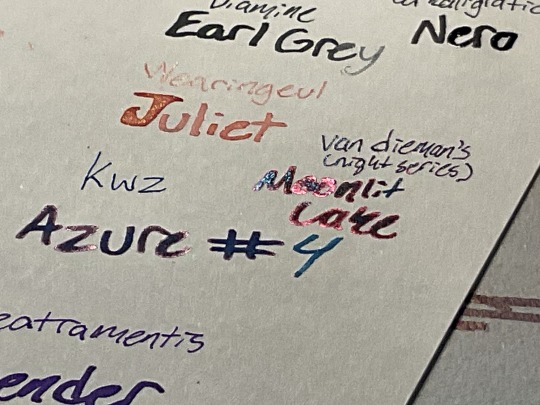 Diamine
Earl Grey
Nero
Wearingeul
Juliet
van dieman's
(night series)
Moonlit
Lake
KWZ
Azure #4
eatramentis
ender